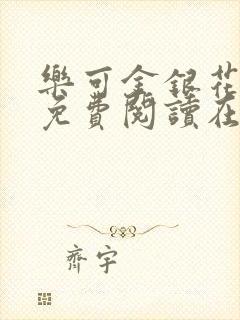 樂可金銀花
免費閱讀在
齊宇